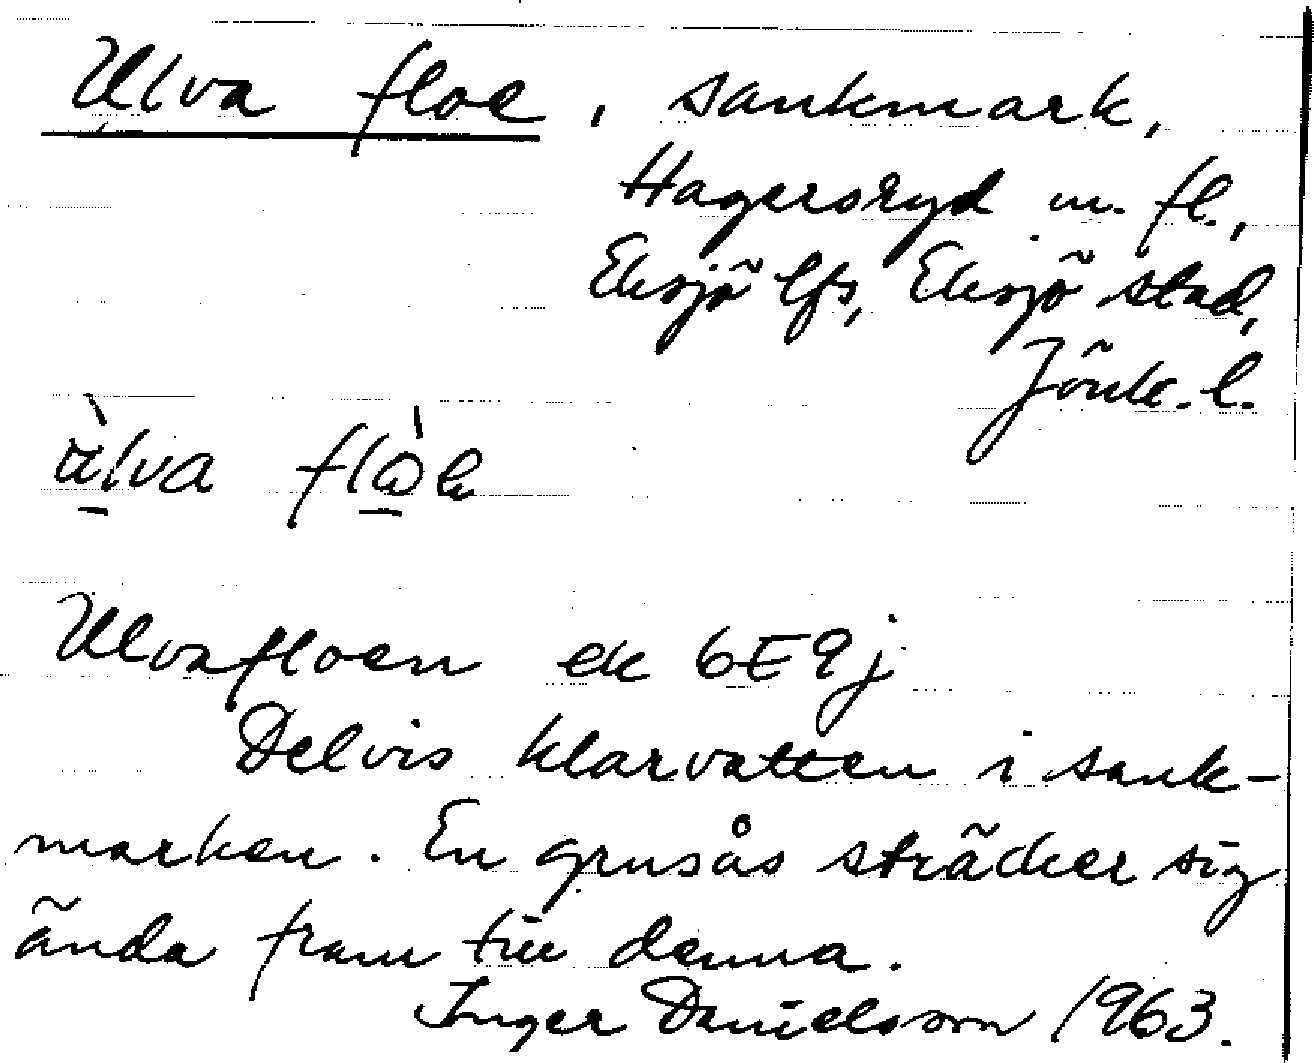 Ulva floe, sankmark,
Hagersryd m. fl.,
Eksjö lfs, Eksjö stad,
Jönk. l.
Ulvafloen ek 6E9j
Delvis klarvatten i sank-
marken. En grusås sträcker sig
ända fram till denna.
Inger Danielsson 1963.